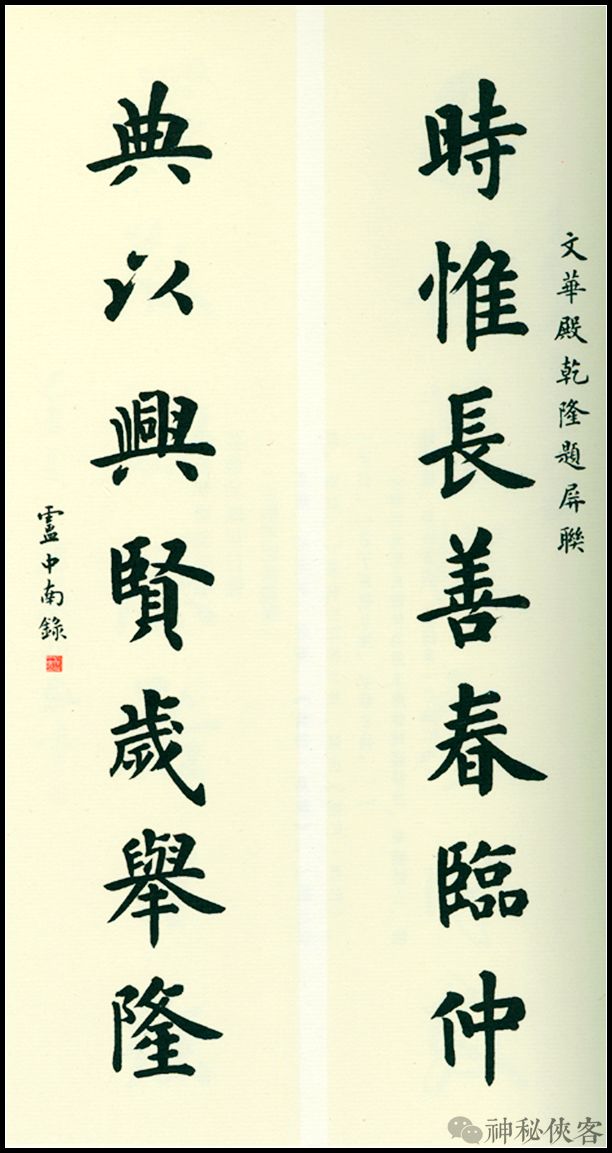 文華殿乾隆題屏聯
時惟長善春臨仲
典以興賢歲舉隆
盧中南錄
神秘俠客